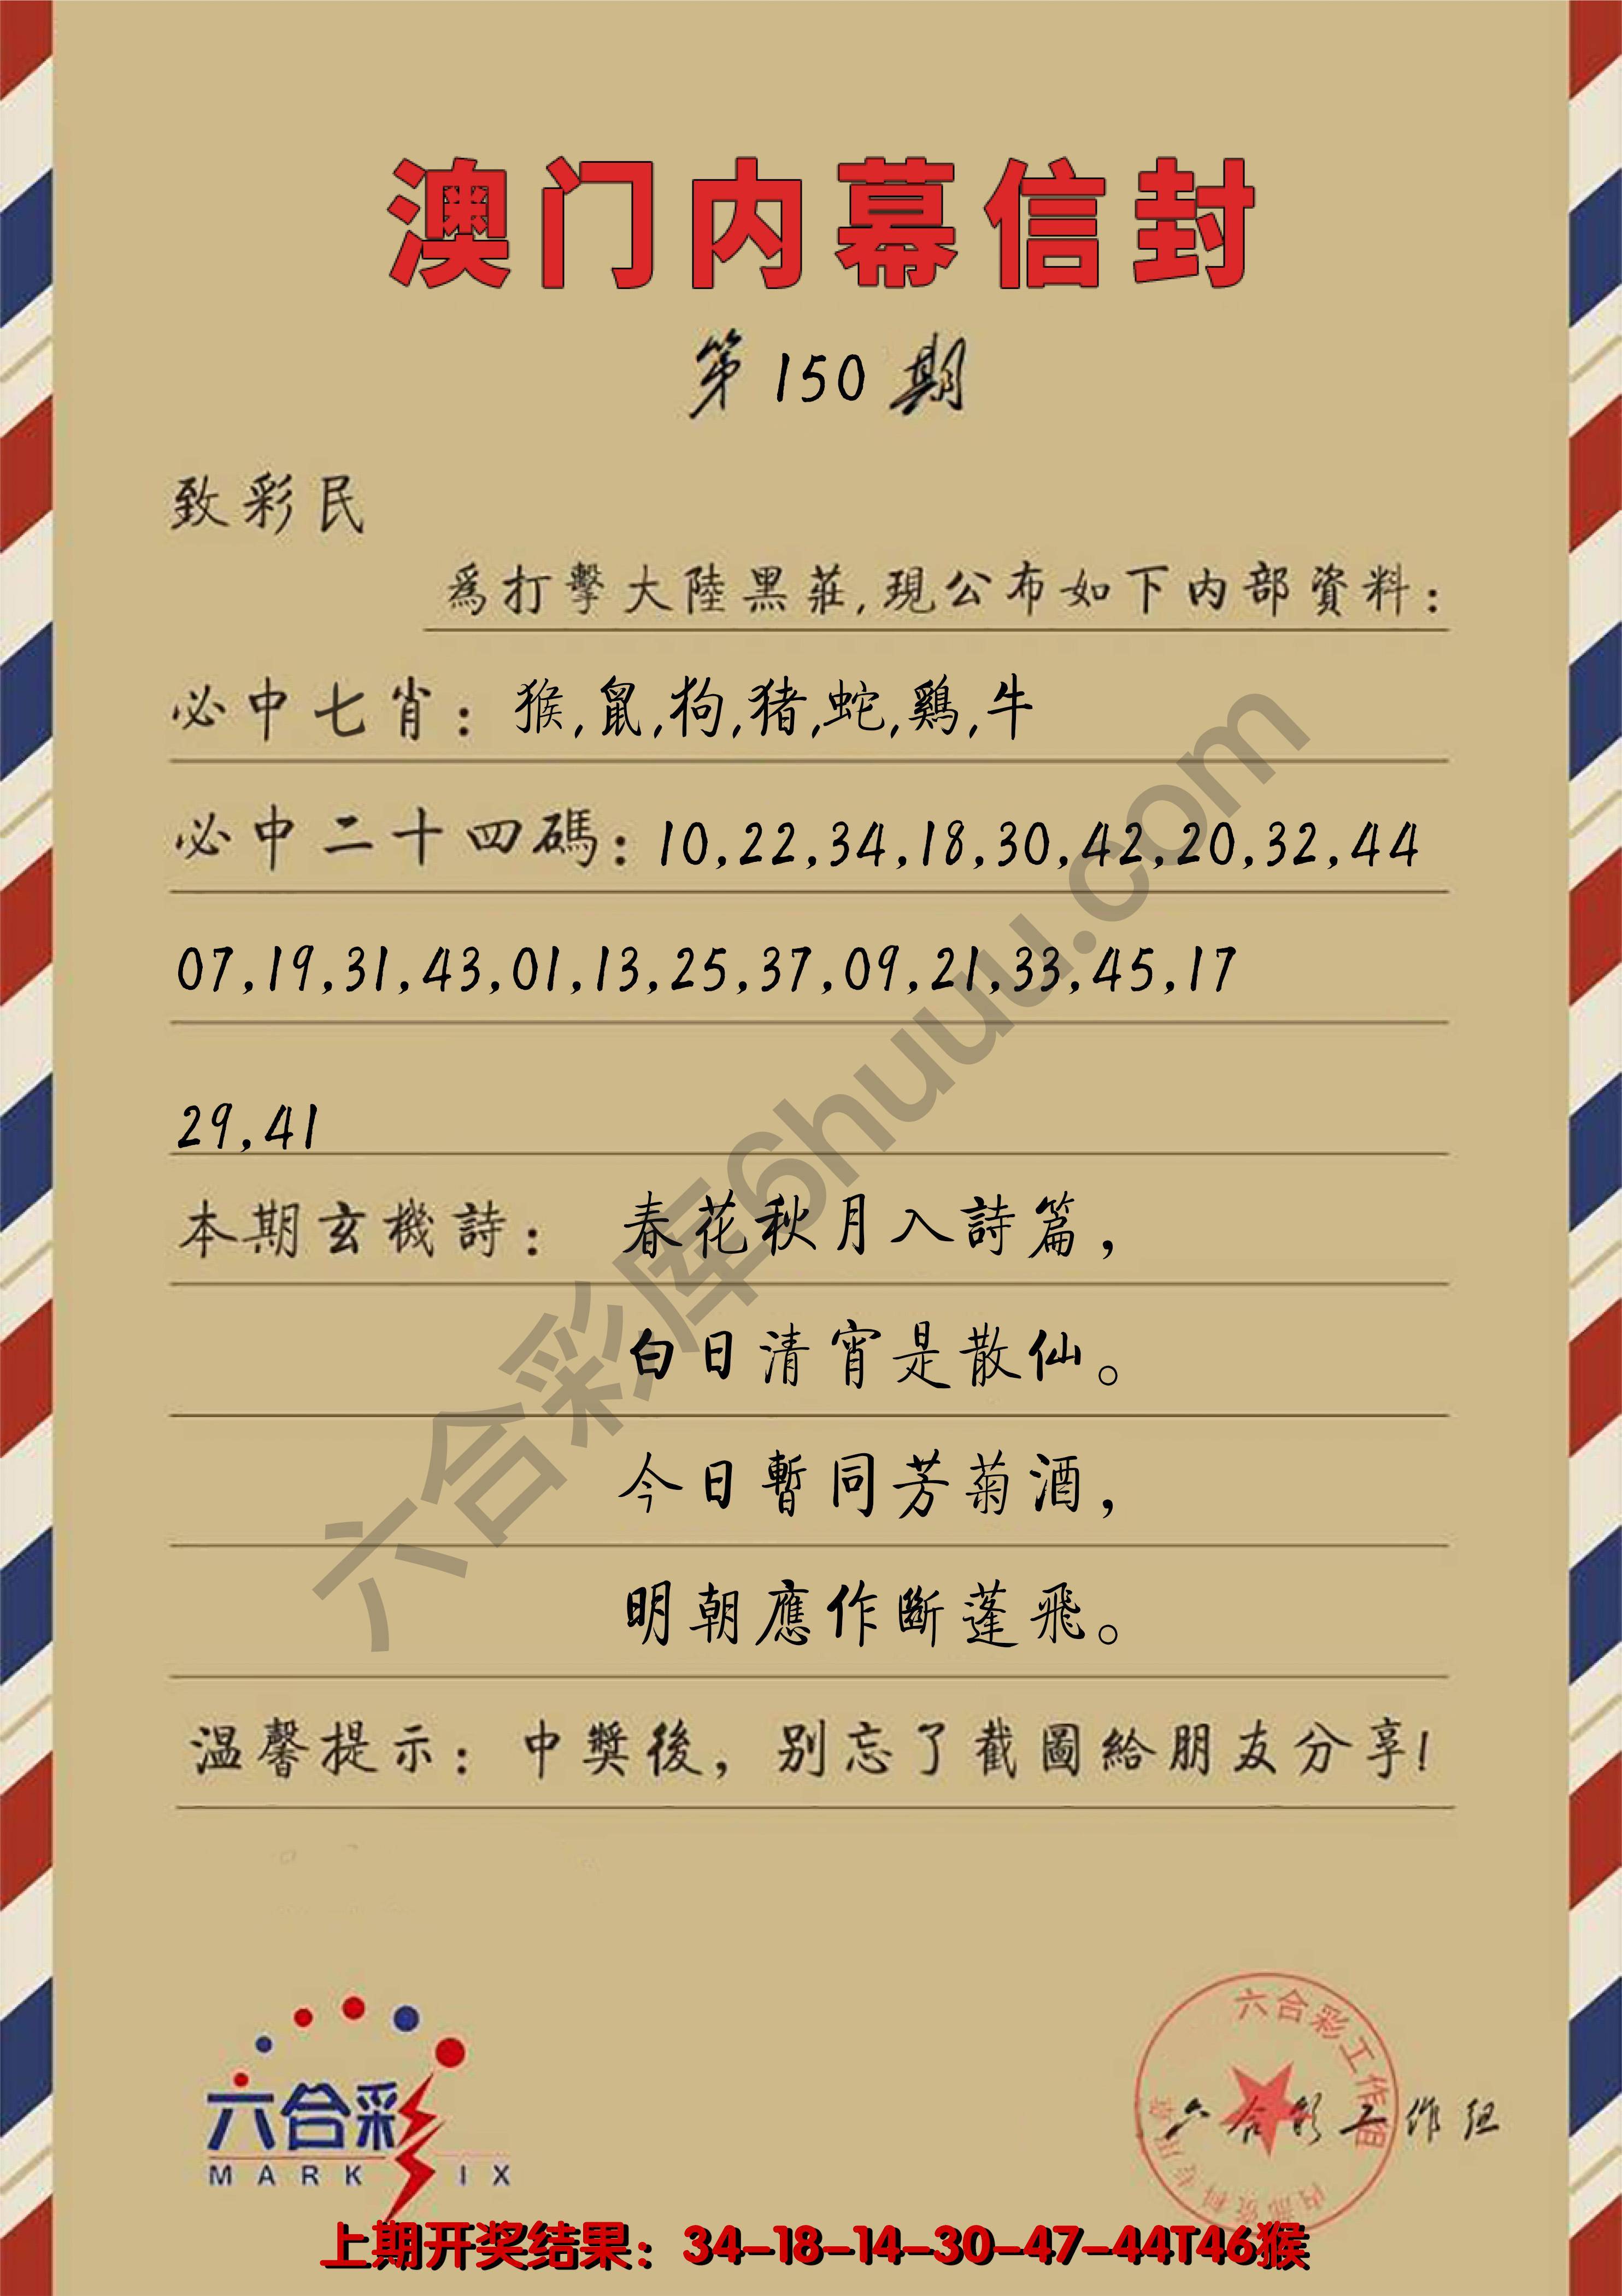 澳门内幕信封
第150期
致彩民
爲打擊大陸黑莊,現公布如下内部資料:
必中七肖: 猴,鼠,狗,猪,蛇,鷄,牛
必中二十四碼: 10,22,34,18,30,42,20,32,44
07,19,31,43,01,13,25,37,09,21,33,45,17
29,41
本期玄機詩: 春花秋月入詩篇,
白日清宵是散仙。
今日暫同芳菊酒,
明朝應作斷蓬飛。
温馨提示: 中獎後, 别忘了截圖給朋友分享!
六合彩库6huuu.com
六合彩
MARK IX
六合彩工作组
内部资料专用章
六合彩工作组
上期开奖结果: 34-18-14-30-47-44T46猴